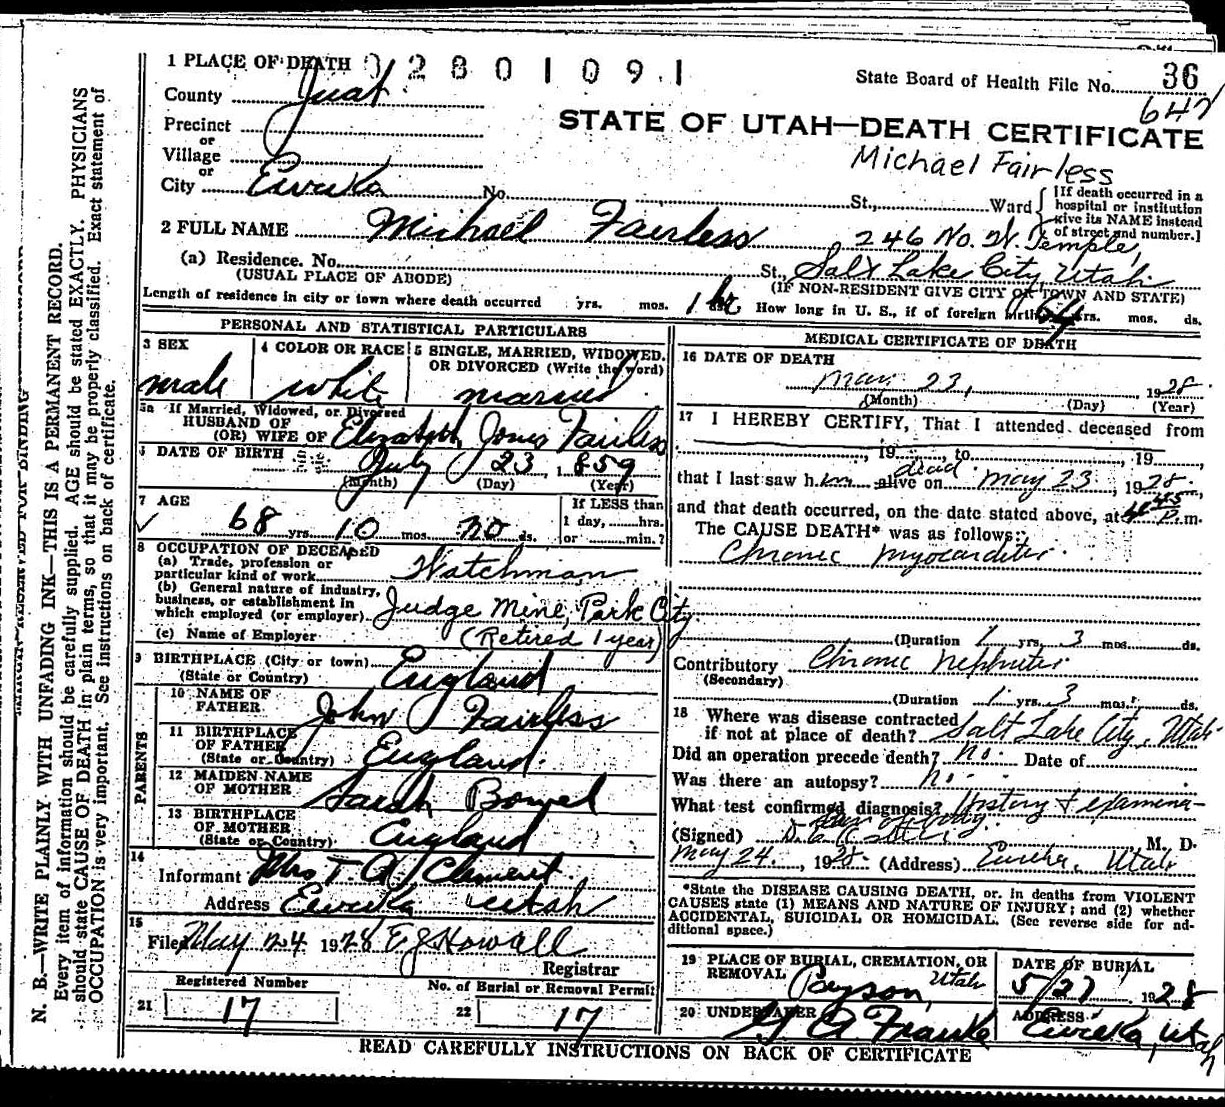 1 PLACE OF DEATH 0280109.1
State Board of Health File No. 36
647
County Juab
STATE OF UTAH—DEATH CERTIFICATE
Precinct
or
Village
Michael Fairless
or
City Eureka No. St., Ward
[If death occurred in a
hospital or institution
give its NAME instead
of street and number.]
2 FULL NAME Michael Fairless
246 No. W. Temple,
(a) Residence. No. St., Salt Lake City, Utah
(USUAL PLACE OF ABODE) (IF NON-RESIDENT GIVE CITY OR TOWN AND STATE)
Length of residence in city or town where death occurred yrs. mos. 1 hr How long in U. S., if of foreign birth? 64 yrs. mos. ds.
PERSONAL AND STATISTICAL PARTICULARS
3 SEX
male
4 COLOR OR RACE
white
5 SINGLE, MARRIED, WIDOWED.
OR DIVORCED (Write the word)
married
5a If Married, Widowed, or Divorced
HUSBAND OF
(OR) WIFE OF Elizabeth Jones Fairless
6 DATE OF BIRTH July 23 1859
(Month) (Day) (Year)
7 AGE
68 yrs. 10 mos. no ds.
If LESS than
1 day, hrs.
or min.?
8 OCCUPATION OF DECEASED
(a) Trade, profession or
particular kind of work Watchman
(b) General nature of industry,
business, or establishment in
which employed (or employer) Judge Mine, Park City.
(c) Name of Employer (Retired 1 year)
9 BIRTHPLACE (City or town)
(State or Country) England
PARENTS
10 NAME OF
FATHER John Fairless
11 BIRTHPLACE
OF FATHER
(State or Country) England.
12 MAIDEN NAME
OF MOTHER Sarah
13 BIRTHPLACE
OF MOTHER
(State or Country) England
14
Informant Mrs T A Clement
Address Eureka Utah
15
Filed May 24 1928 E J Howall
Registrar
Registered Number
21 17
No. of Burial or Removal Permit
22 17
MEDICAL CERTIFICATE OF DEATH
16 DATE OF DEATH
May 23, 1928.
(Month) (Day) (Year)
17 I HEREBY CERTIFY, That I attended deceased from
, 19 , to , 19 ,
that I last saw him alive on dead May 23, 1928.
and that death occurred, on the date stated above, at 4:45 P.m.
The CAUSE DEATH* was as follows:
Chronic myocarditis
(Duration 1 yrs. 3 mos. ds.
Contributory Chronic Nephritis
(Secondary)
(Duration 1 yrs. 3 mos. ds.
18 Where was disease contracted
if not at place of death? Salt Lake City, Utah
Did an operation precede death? no. Date of
Was there an autopsy? no.
What test confirmed diagnosis? History & examina-
(Signed) M. D.
May 24, 1928. (Address) Eureka, Utah
*State the DISEASE CAUSING DEATH, or, in deaths from VIOLENT
CAUSES state (1) MEANS AND NATURE OF INJURY; and (2) whether
ACCIDENTAL, SUICIDAL OR HOMICIDAL. (See reverse side for ad-
ditional space.)
19 PLACE OF BURIAL, CREMATION, OR
REMOVAL Payson, Utah
DATE OF BURIAL
5/27 1928
20 UNDERTAKER G A Franke
ADDRESS
Eureka, Utah
READ CAREFULLY INSTRUCTIONS ON BACK OF CERTIFICATE
N. B.—WRITE PLAINLY WITH UNFADING INK—THIS IS A PERMANENT RECORD.
Every item of information should be carefully supplied. AGE should be stated EXACTLY. PHYSICIANS
should state CAUSE OF DEATH in plain terms, so that it may be properly classified. Exact statement of
OCCUPATION is very important. See instructions on back of certificate.